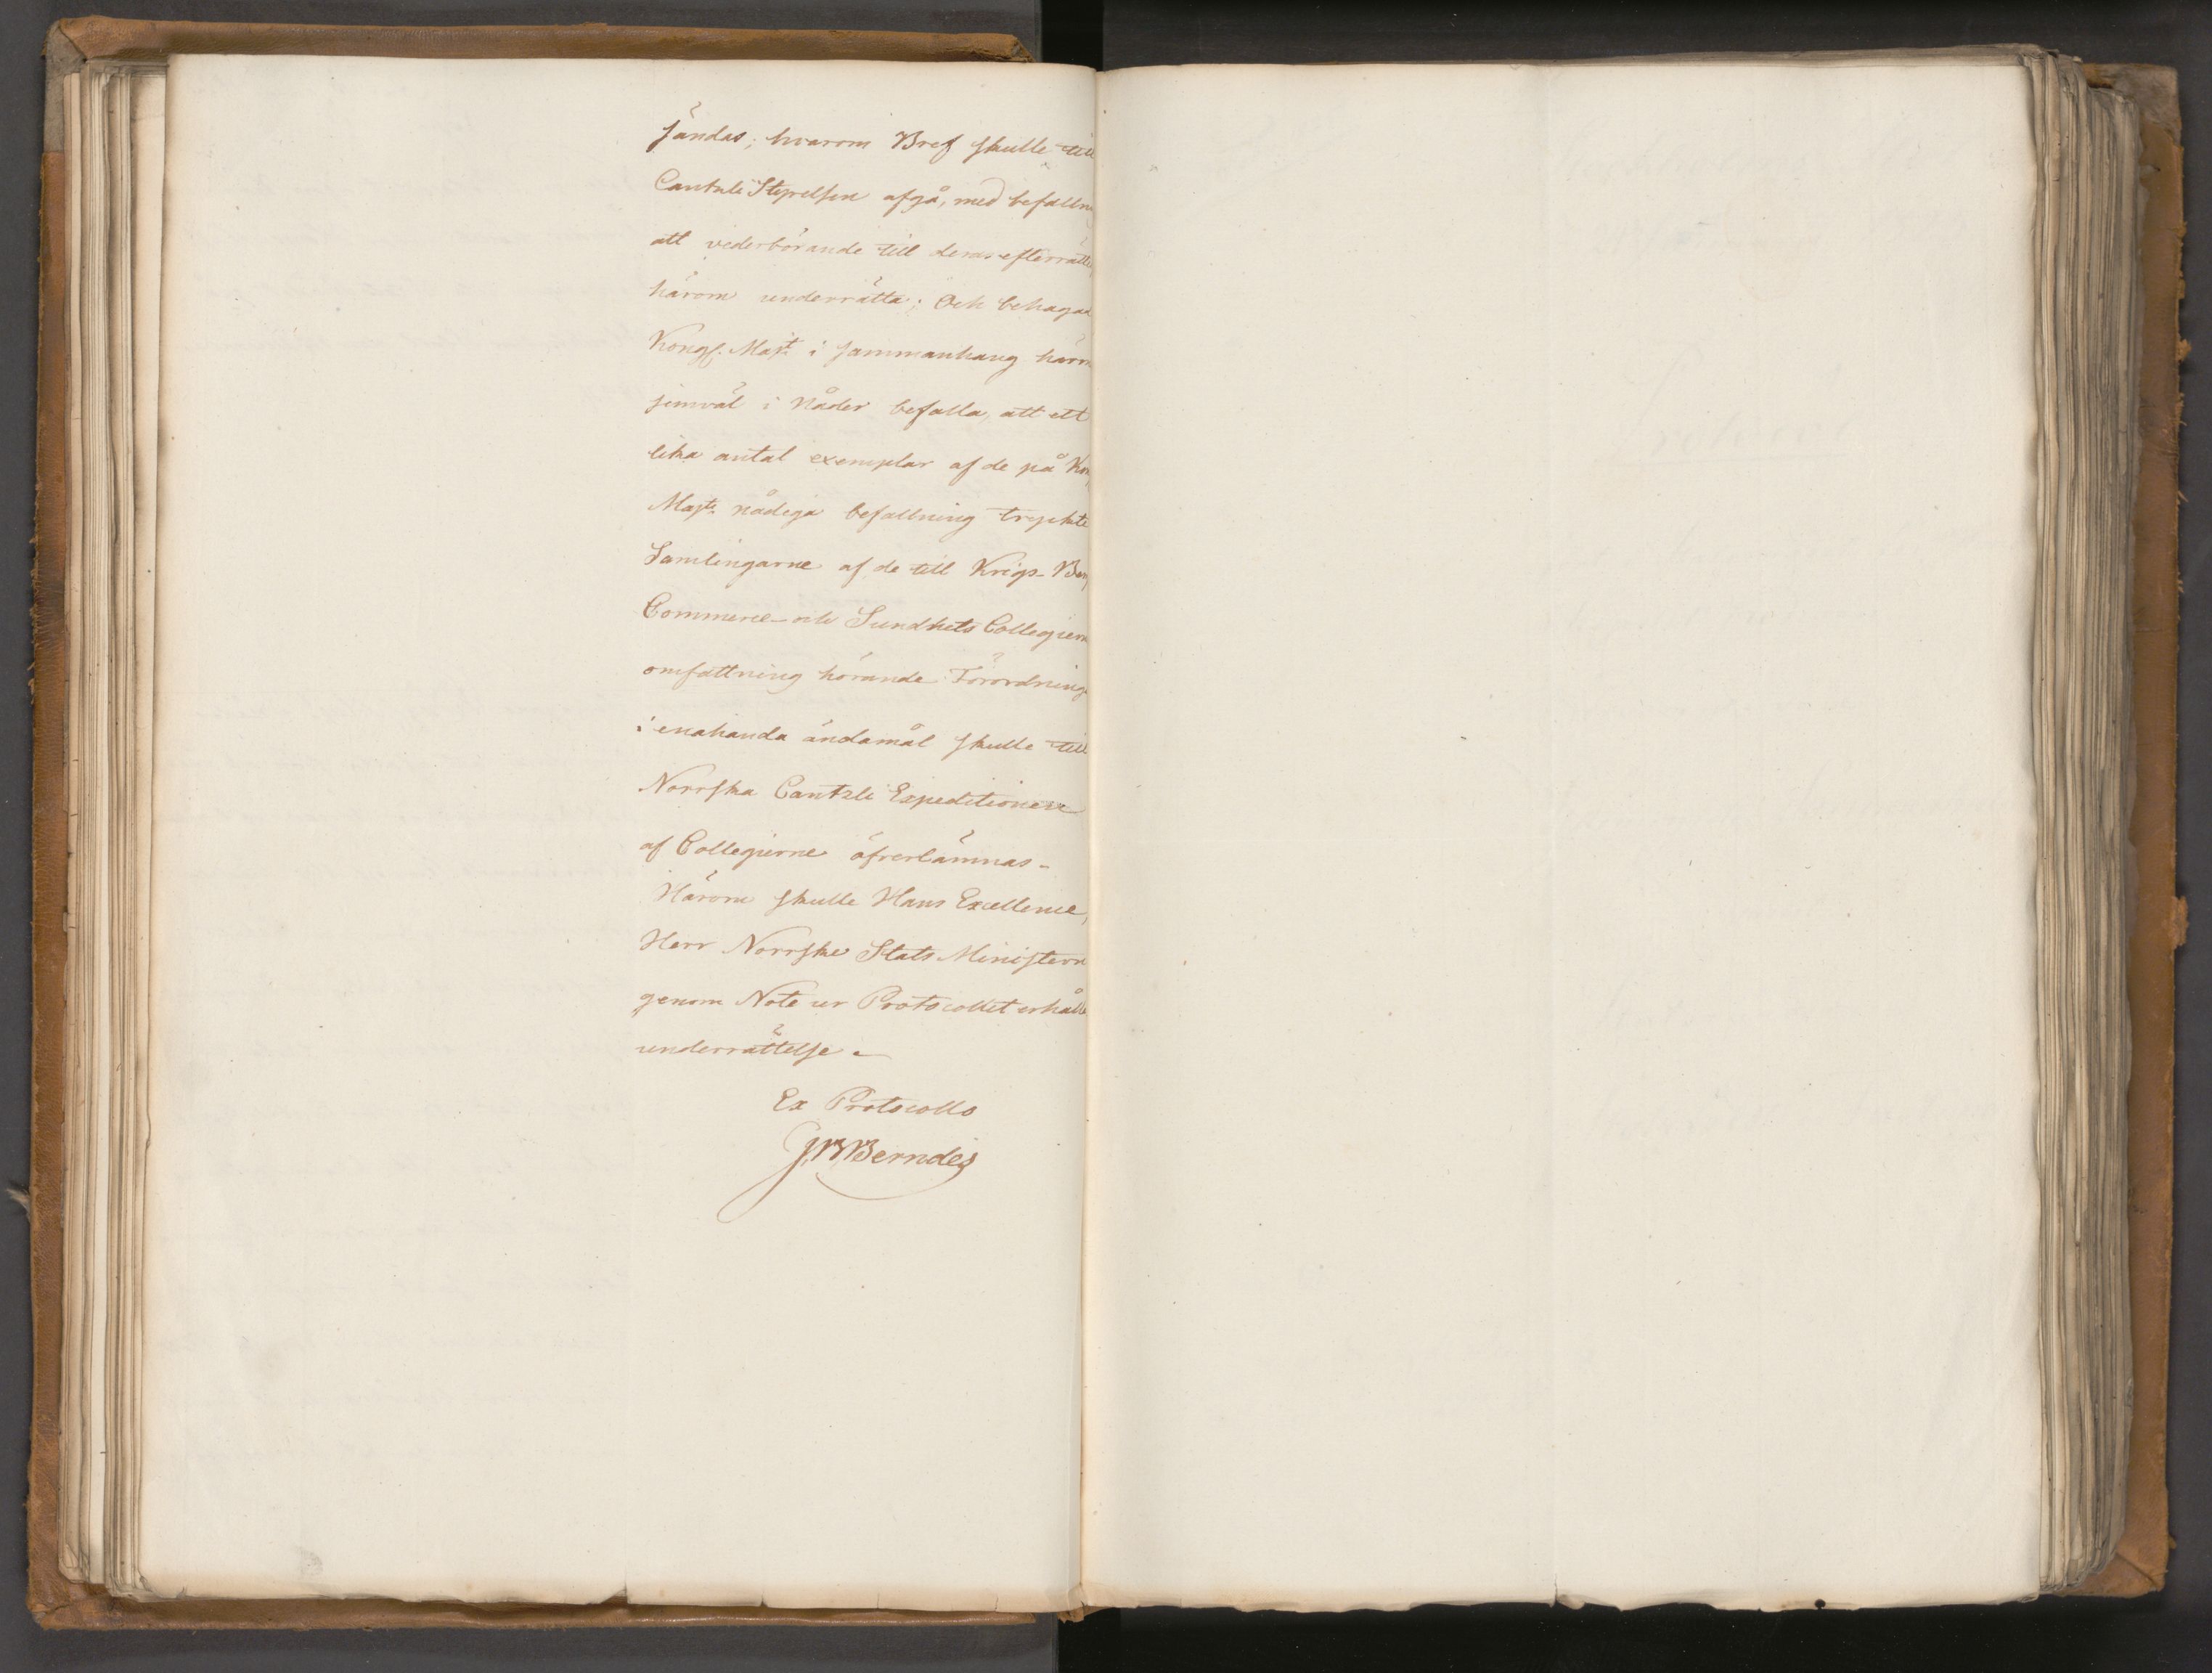 sändas; hvarom Bref skulle till
Cantzli Styrelsen afgå, med befalln
att vederbörande till deras efterrätte
härom underrätta; Och behagad
Kongl. Majt i sammanhang härm
jemväl i Nåder befalla, att ett
lika antal exemplar af de på Kon
Majts nådiga befallning tryckte
Samlingarne af de till Krigs- Ber
Commerce- och Sundhets Collegiern
omfattning hörande Förordning
i enahanda ändamål skulle till
Norrska Cantzli Expeditionen
af Collegierne öfverlämnas -
Härom skulle Hans Excellence,
Herr Norrske Stats Ministern
genom Note ur Protocollet erhålle
underrättelse -
Ex Protocollo
J. B. Berndes